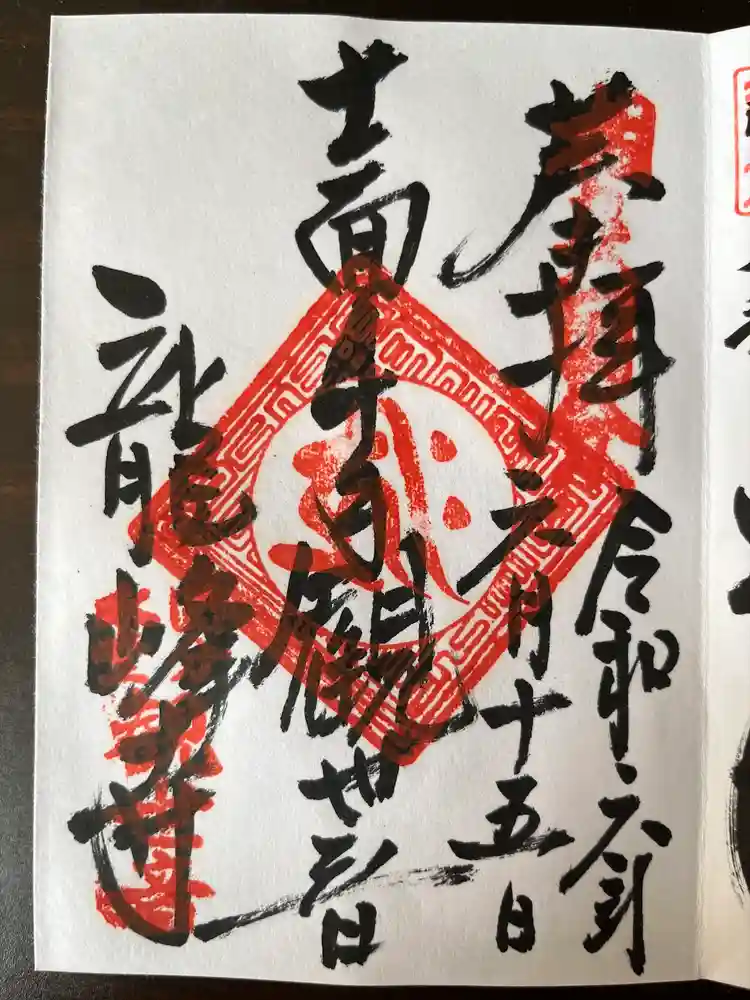 奉拝
令和六年
六月十五日
十一面千手観世音
龍峰寺